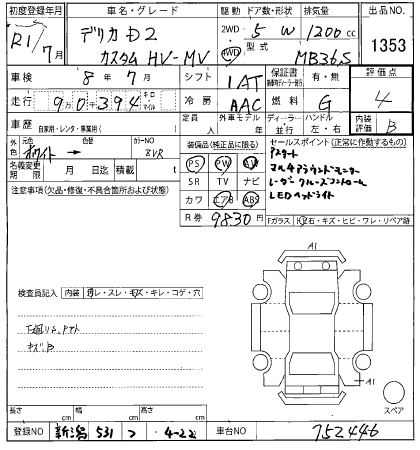 初度登録年月 車名・グレード 駆動 ドア数・形状 排気量 出品NO
R1/7月 デリカD2 2WD 4WD 5 W 1200cc 1353
カスタム HV-MV 型式 MB36S
車検 8年7月 シフト IAT 保証書 有・無 評価点
走行 9万0千394 キロ マイル 冷房 AAC 燃料 G 4
車歴 自家用・レンタ・事業用( ) 定員 人 外車モデル 年 ディーラー 並行 ハンドル 左・右 内装評価 B
外色 元色 ホワイト → 色替 カラーNO ZVR 装備品(純正品に限る) セールスポイント(正常に作動するもの)
名義変更期限 月 日迄 積載量 t PS PW AW
注意事項(欠品・修復・不具合箇所および状態) SR TV ナビ マルチアラウンドモニター
カワ エアB ABS レーダークルーズコントロール
LEDヘッドライト
R券 9830円 Fガラス 飛石・キズ・ヒビ・ワレ・リペア跡
A1
検査員記入 内装 汚レ・スレ・キズ・キレ・コゲ・穴
キズB
A1
スペア
長さ cm 幅 cm 高さ cm
登録NO 新潟 531 つ 4-22 車台NO 752446